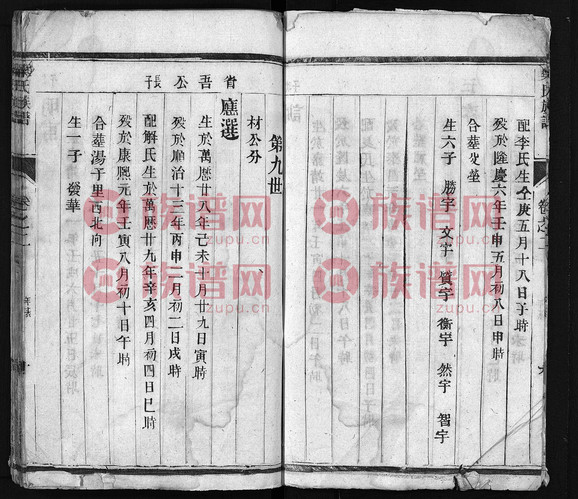 配李氏生仝庚五月十八日子時
歿於隆慶六年壬申五月初八日申時
合葬父塋
生六子 勝宇 文宇 質宇 衡宇 然宇 智宇
卷之二
第九世
材公分
省吾公長子
應選
生於萬曆廿八年己未十月廿九日寅時
歿於順治十三年丙申二月初二日戌時
配解氏生於萬曆廿九年辛亥四月初四日巳時
歿於康熙元年壬寅八月初十日午時
合葬湯子里西北向
生一子 發華
族谱网
zupu.cn